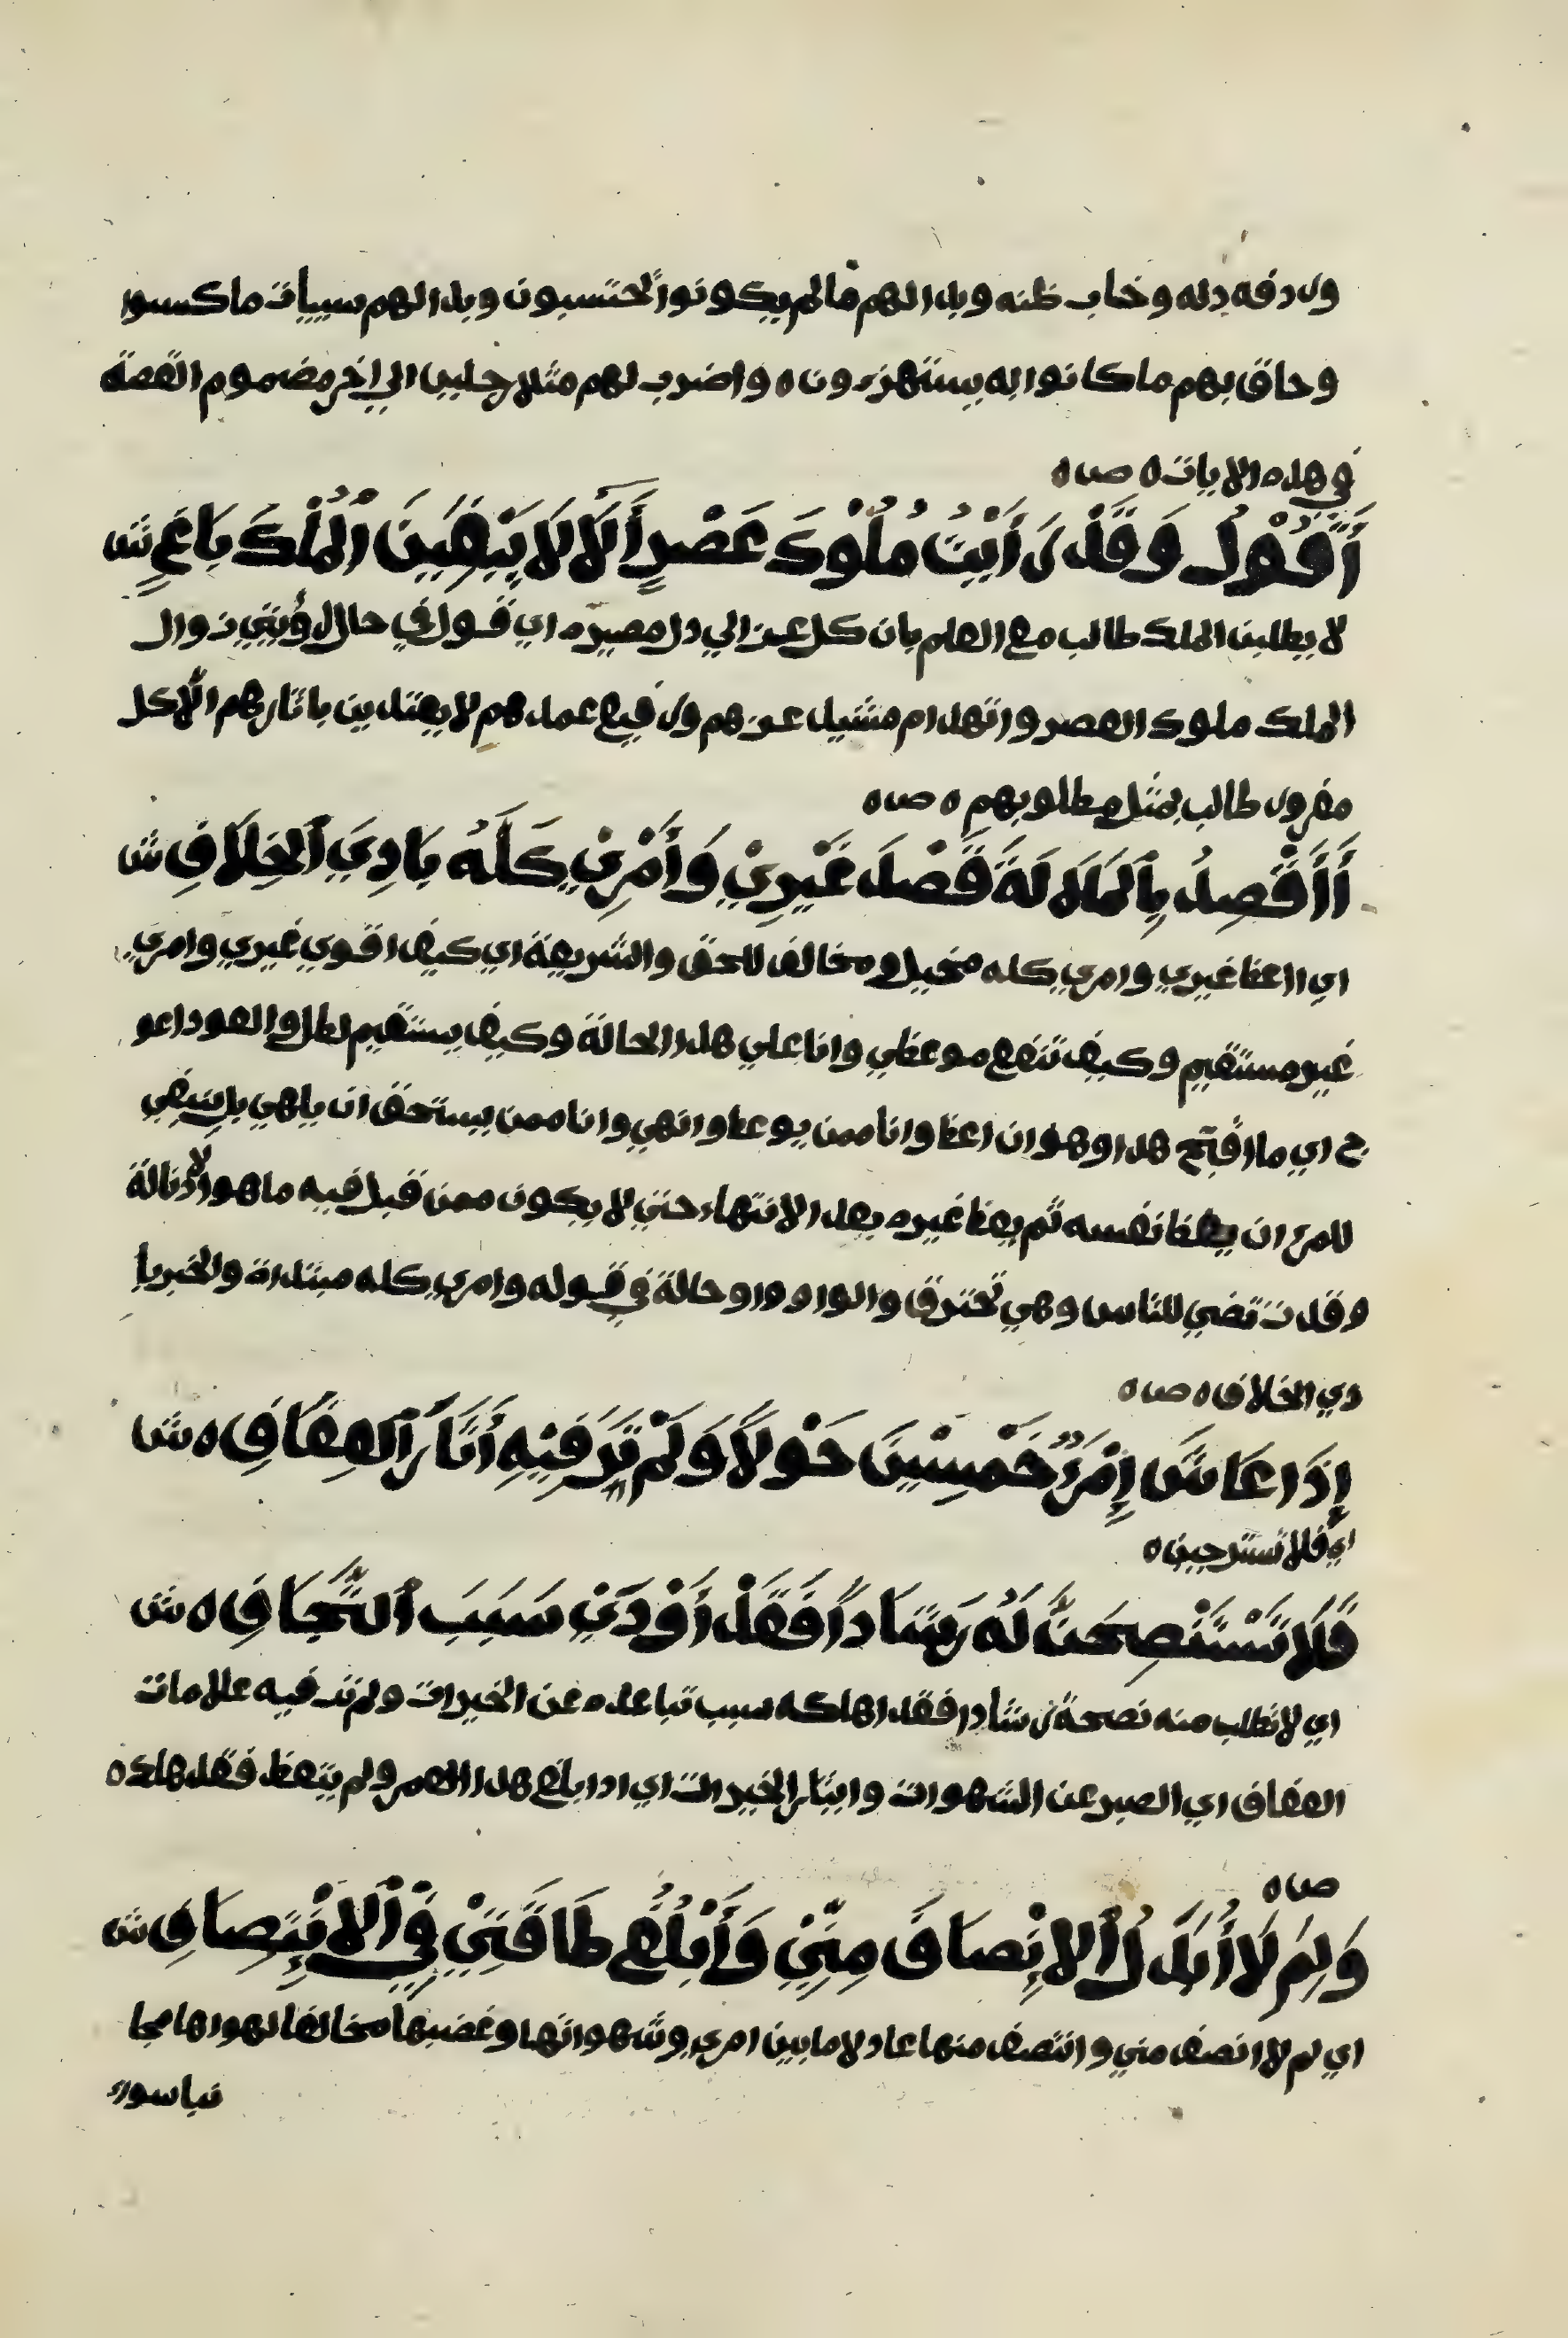 وردفه دله وخاب ظنه وبدا لهم مالم يكونوا يحتسبون وبدا لهم سييات ما كسبوا
وحاق بهم ما كانوا به يستهزءون ه واضرب لهم مثلا رجلين الي اخر مضموم القصة
في هذه الايات ه ص ه
أَقُوْلُ وَقَدْ رَأَيْتُ مُلُوْكَ عَصْرٍ أَلَا لَا يَبْغِيَنَّ الْمُلْكَ بَاغٍ ش
لا يطلبن الملك طالب مع العلم بان كل عز الي دل مصيره اي قول في حال رؤيتي زوال
الملك ملوك العصر وانهدام مشيد عزهم ورفيع عمدهم لا يقتدين باثارهم الاكل
مغرور طالب بمثل مطلوبهم ه ص ه
أَأَقْصِدُ بِالْمَلَالَةِ قَصْدَ غَيْرِيْ وَأَمْرِيْ كُلُّهُ بَادِيَ الْخِلَافِ ش
اي ااعظ غيري وامري كله مخيل ومخالف للحق والشريعة اي كيف اقوي غيري وامري
غير مستقيم وكيف تنفع موعظي وانا علي هدا الحالة وكيف يستقيم لظل والعود اعو
ج اي ما اقبح هدا وهو ان اعظ وانا ممن يوعظ وانهي وانا ممن يستحق ان ينهي بل ينبغي
للمرء ان يعظ نفسه ثم يعظ غيره بعد الانتهاء حتي لا يكون ممن قيل فيه ما هو الا دبالة
وقدت تضي للناس وهي تحترق والواو واو حالة في قوله وامري كله مبتداة والخبر با
دي الخلاف ه ص ه
إِذَا عَاشَ إِمْرُءٌ خَمْسِيْنَ حَوْلًا وَلَمْ تُرَ فِيْهِ أَثَارُ الْعِفَافِ ه ش
اي فلا تسترجين ه
فَلَا تَسْتَنْصِحَنَّ لَهُ رَشَادًا فَقَدْ أَوْدَيْ سَبَبَ التَّجَافِ ه ش
اي لا تطلب منه نصحة رشادا فقد اهلكه سبب تباعده عن الخيرات ولم تر فيه علامات
العفاف اي الصبر عن الشهوات وايثار الخيرات اي ادا بلغ هدا العمر ولم يتعظ فقد هلك ه
ص ه
وَلِمَ لَا أَبْدُلُ الْإِنْصَافَ مِنِّيْ وَأَبْلُغُ طَاقَتِيْ فِي الْإِنْتِصَافِ ش
اي لم لا انصف مني وانتصف منها عادلا ما بين امري وشهواتها وغضبها مخالفا لهواها مجا
نبا سور